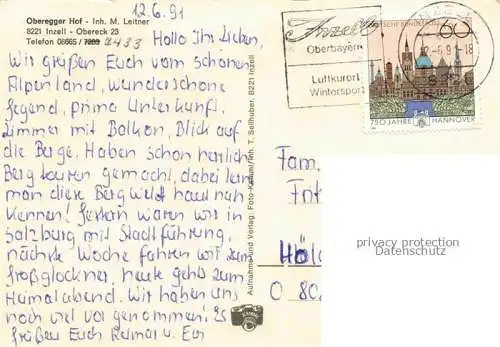 Oberegger Hof - Inh. M. Leitner
8221 Inzell - Obereck 23
Telefon 08665 / 7209 7433
12.6.91
Hallo Ihr Lieben,
Wir grüßen Euch vom schönen
Alpenland, wunderschöne
Gegend, prima Unterkunft,
Zimmer mit Balkon, Blick auf
die Berge. Haben schon herrliche
Bergtouren gemacht, dabei lernt
man diese Bergwelt hautnah
kennen! Gestern waren wir in
Salzburg mit Stadtführung,
nächste Woche fahren wir zum
Großglockner, heute gehts zum
Heimatabend. Wir haben uns
noch viel vor genommen! Es
grüßen Euch Reimar u. Evi
Aufnahme und Verlag: Foto-Kamml/Inh. T. Seilhuber, 8221 Inzell
Inzell
Oberbayern
Luftkurort
Wintersport
DEUTSCHE BUNDESPOST
60
750 JAHRE HANNOVER
Fam.
O 80
privacy protection
Datenschutz